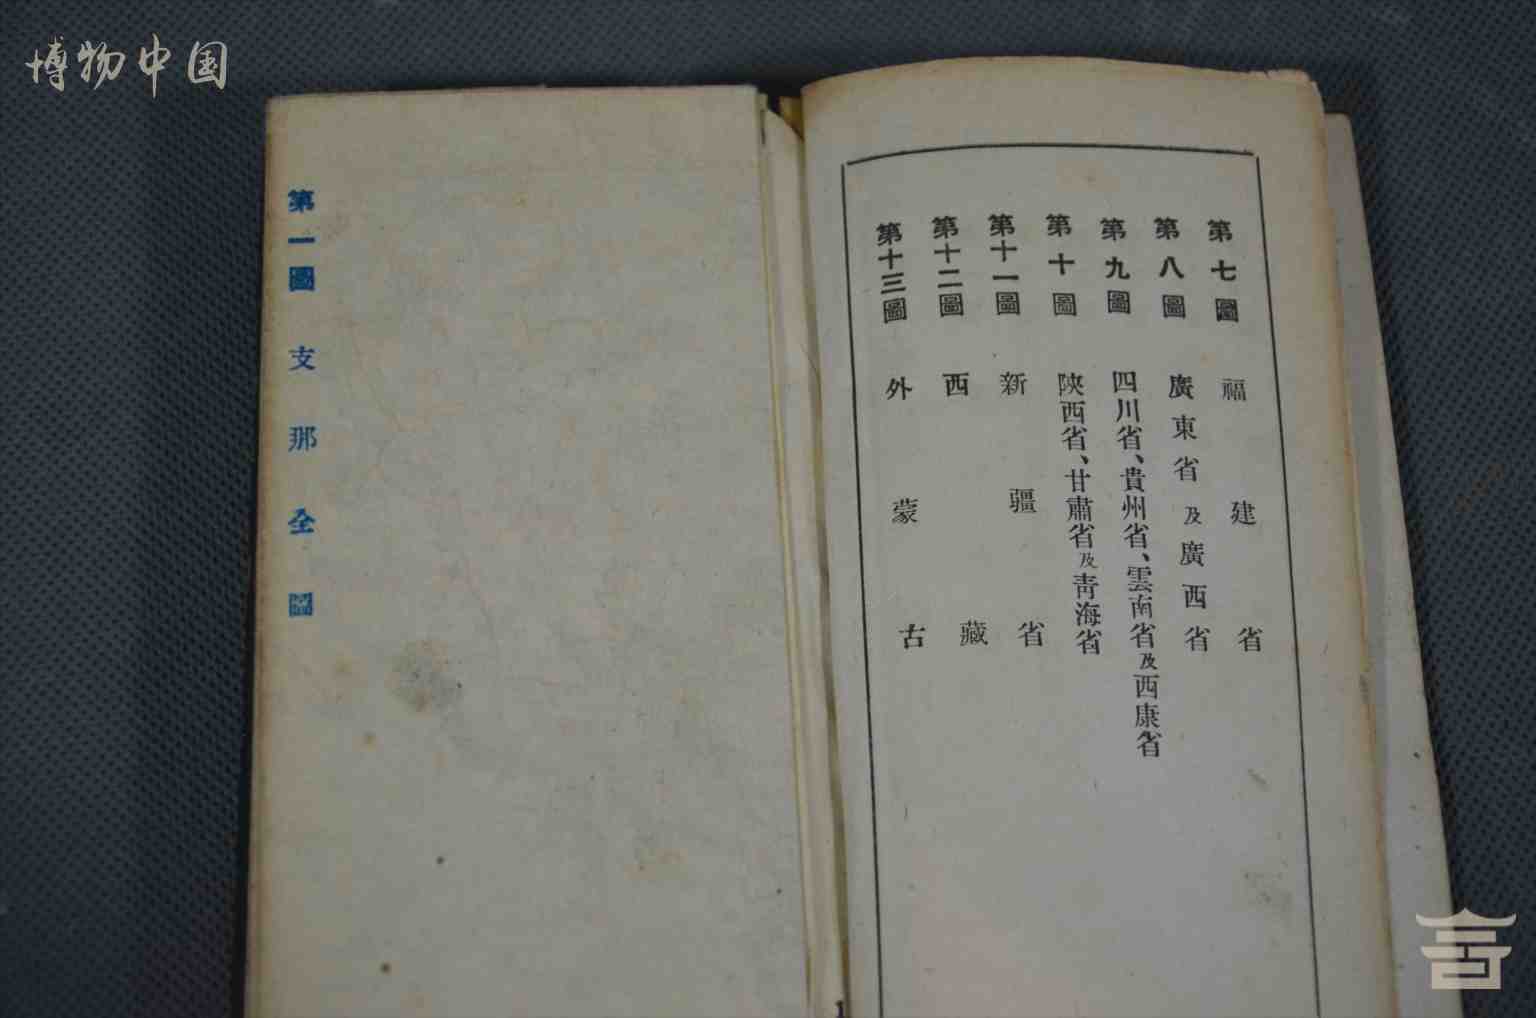 博物中国
第七圖 福建省
第八圖 廣東省及廣西省
第九圖 四川省、貴州省、雲南省及西康省
第十圖 陝西省、甘肅省及靑海省
第十一圖 新疆省
第十二圖 西藏
第十三圖 外蒙古
第一圖 支那全圖